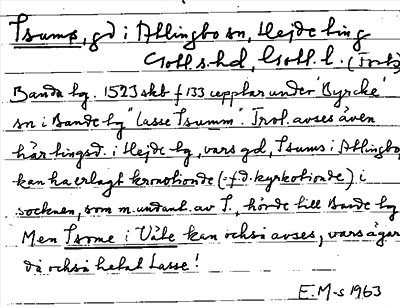 Tsums, gd i Atlingbo sn, Hejde ting
Gotl. s. hd, Gotl. l. (Forts)
Banda tg. 1523 skb f 133 upptar under "Byrche"
sn i Bande tg "Lasse Tsumm". Trol. avses även
här tingsd. i Hejde tg, vars gd, Tsums i Atlingbo,
kan ha erlagt kronotionde (-f.d. kyrkotionde) i
socknen, som m. undant. av T., hörde till Bande tg
Men Isome i Väte kan också avses, vars ägare
då också hetat Lasse!
E. M-s 1963